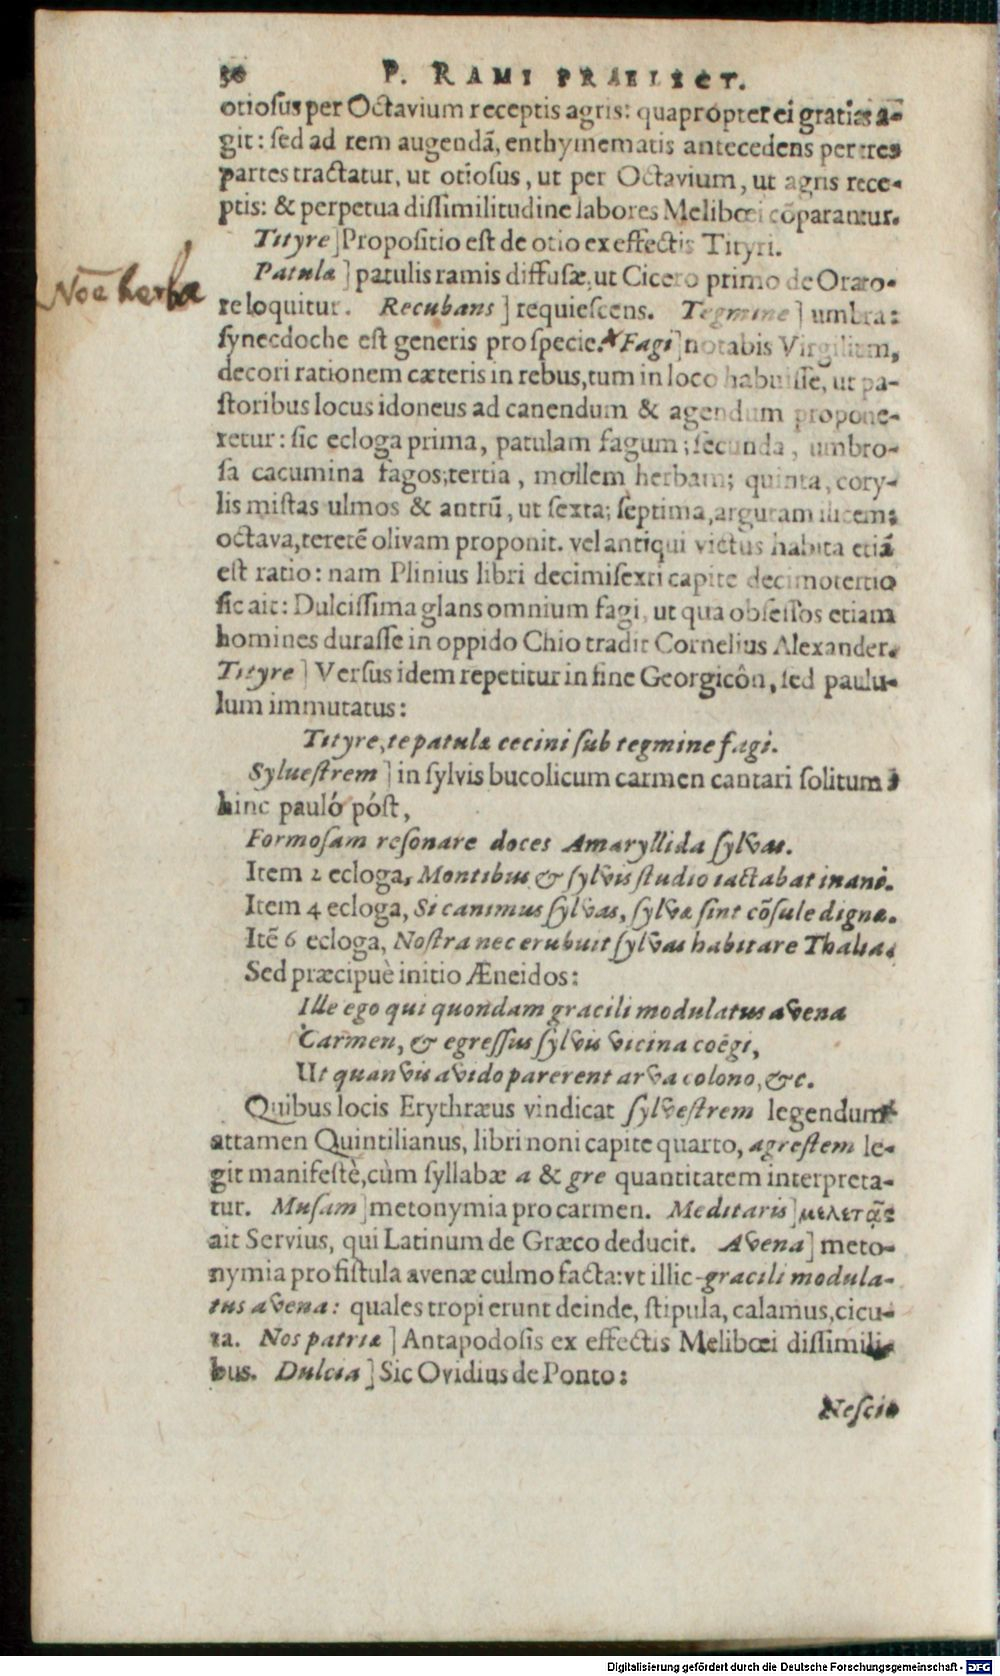 50 P. RAMI PRAELECT.
otiosus per Octavium receptis agris: quapropter ei gratias a-
git: sed ad rem augendā, enthymematis antecedens per tres
partes tractatur, ut otiosus, ut per Octavium, ut agris rece-
ptis: & perpetua dissimilitudine labores Melibœi cōparantur.
Tityre] Propositio est de otio ex effectis Tityri.
Patulæ] patulis ramis diffusæ, ut Cicero primo de Orato-
re loquitur. Recubans] requiescens. Tegmine] umbra:
synecdoche est generis pro specie. Fagi] notabis Virgilium,
decori rationem cæteris in rebus, tum in loco habuisse, ut pa-
storibus locus idoneus ad canendum & agendum propone-
retur: sic ecloga prima, patulam fagum; secunda, umbro-
sa cacumina fagos; tertia, mollem herbam; quinta, cory-
lis mistas ulmos & antrū, ut sexta; septima, argutam ilicem;
octava, teretē olivam proponit. vel antiqui victus habita etiā
est ratio: nam Plinius libri decimisexti capite decimotertio
sic ait: Dulcissima glans omnium fagi, ut qua obsessos etiam
homines durasse in oppido Chio tradit Cornelius Alexander.
Tityre] Versus idem repetitur in fine Georgicôn, sed paulu-
lum immutatus:
Tityre, te patulæ cecini sub tegmine fagi.
Syluestrem] in sylvis bucolicum carmen cantari solitum;
hinc pauló póst,
Formosam resonare doces Amaryllida sylvas.
Item 2 ecloga, Montibus & sylvis studio iactabat inani.
Item 4 ecloga, Si canimus sylvas, sylvæ sint cōsule dignæ.
Itē 6 ecloga, Nostra nec erubuit sylvas habitare Thalia.
Sed præcipuè initio Æneidos:
Ille ego qui quondam gracili modulatus avena
Carmen, & egressus sylvis vicina coëgi,
Ut quanvis avido parerent arva colono, &c.
Quibus locis Erythræus vindicat sylvestrem legendum:
attamen Quintilianus, libri noni capite quarto, agrestem le-
git manifestè, cùm syllabæ a & gre quantitatem interpreta-
tur. Musam] metonymia pro carmen. Meditaris] μελετᾷς
ait Servius, qui Latinum de Græco deducit. Avena] meto-
nymia pro fistula avenæ culmo facta: vt illic gracili modula-
tus avena: quales tropi erunt deinde, stipula, calamus, cicu-
ta. Nos patriæ] Antapodosis ex effectis Melibœi dissimili-
bus. Dulcia] Sic Ovidius de Ponto:
Nescio
Noē herbæ
Digitalisierung gefördert durch die Deutsche Forschungsgemeinschaft - DFG